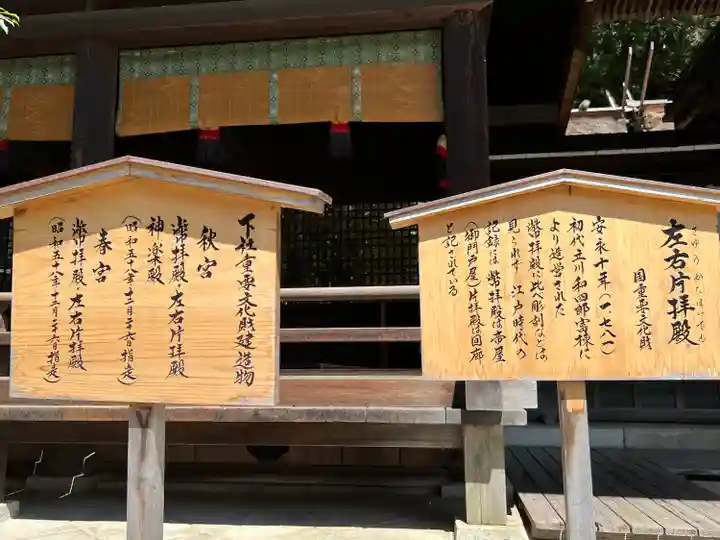 左右片拝殿
さゆうかたはいでん
国重要文化財
安永十年(一七八一)
初代立川和四郎富棟に
より造営された
幣拝殿に比べ彫刻などは
見られず江戸時代の
記録には幣拝殿は帝屋
(御門戸屋)片拝殿は回廊
と記されている
下社重要文化財建造物
秋宮
幣拝殿・左右片拝殿
神楽殿
(昭和五十八年十二月二十六日指定)
春宮
幣拝殿・左右片拝殿
(昭和五十八年十二月二十六日指定)